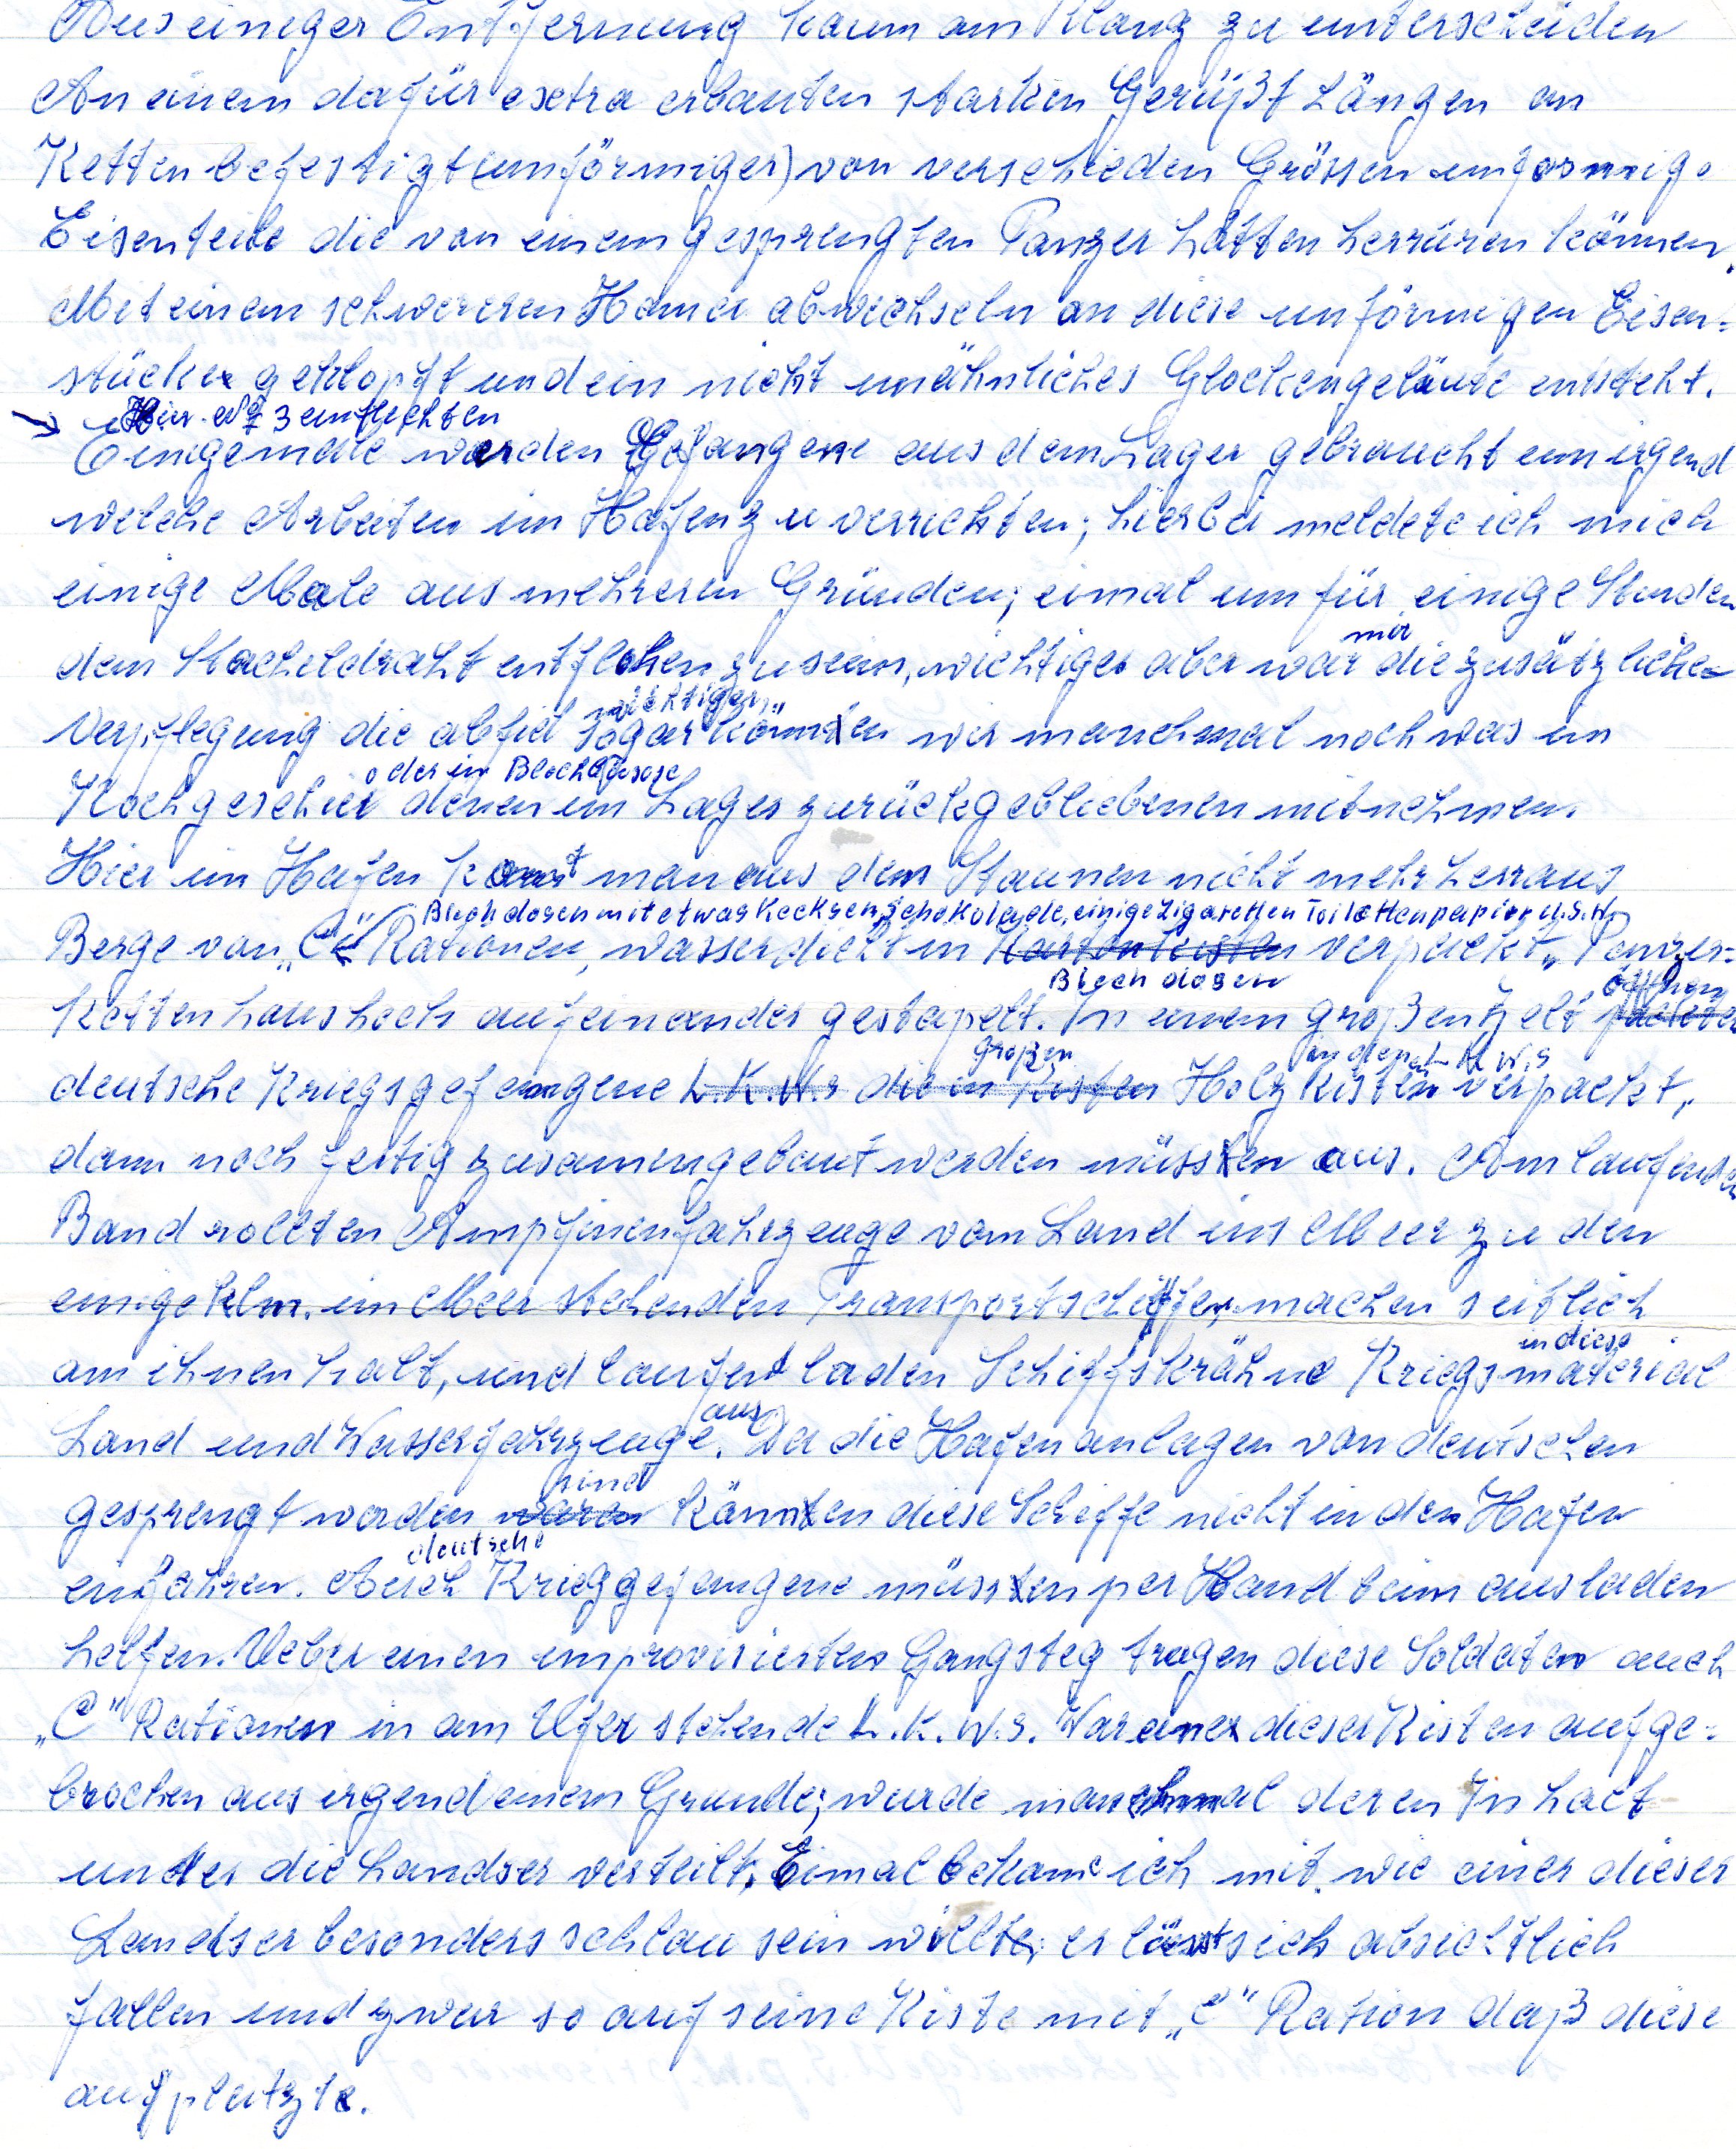 Aus einiger Entfernung kaum am Klang zu unterscheiden
An einem dafür extra erbauten starken Gerüßt hängen an
Ketten befestigt (unförmiger) von verschieden Grössen unförmige
Eisenteile die von einem gesprengten Panzer hätten herrüren können.
Mit einem schweren Hamer abwechseln an diese unförmigen Eisen=
stücke geklopft und ein nicht unähnliches Glockengeläute entsteht.
Hier Nr 3 einflechten
Einigemale werden Gefangene aus dem Lager gebraucht um irgend
welche Arbeiten im Hafen zu verrichten; hierbei meldete ich mich
einige Male aus mehreren Gründen; eimal um für einige Stunden
mir
dem Stacheldraht entflohen zu sein, wichtiger aber war die zusätzliche
wichtiger
Verpflegung die abfiel sogar können wir manchmal noch was im
oder in Blechdose
Kochgeschier denen im Lager zurückgebliebenen mitnehmen.
Hier im Hafen kommt man aus dem Staunen nicht mehr herraus
Blechdosen mit etwas Kecksen, Schokolade, einige Zigaretten Toilettenpapier u.s.w.
Berge von „C" Rationen, wasserdicht in Kartonkisten verpackt, Panzer=
Blech dosen
öffnen
ketten haushoch aufeinander gestapelt. In einem großen Zelt
großen in denen L.K.W.s
deutsche Kriegsgefangene L.K.W.s die in Kisten Holzkisten verpackt,
dann noch fertig zusamengebaut werden müssen aus. Am laufenden
Band rollten Ampfinenfahrzeuge vom Land ins Meer zu den
einige klm. im Meer stehenden Transportschiffen, machen seitlich
in diese
an ihnen halt, und laufent laden Schiffskrähne Kriegsmaterial
aus
Land und Wasserfahrzeuge. Da die Hafenanlagen von deutschen
sind
gesprengt worden waren können diese Schiffe nicht in den Hafen
deutsche
einfahren. Auch Krieggefangene müssen per Hand beim ausladen
helfen. Ueber einen improvisierten Gangsteg tragen diese Soldaten auch
„C" Rationen in am Ufer stehende L.K.W.s. War eine dieser Kisten aufge=
brochen aus irgend einem Grunde; wurde manchmal deren Inhalt
unter die Landser verteilt. Eimal bekam ich mit, wie einer dieser
Landser besonders schlau sein willte; er lässt sich absichtlich
fallen und zwar so auf seine Kiste mit „C" Ration daß diese
aufplatzte.